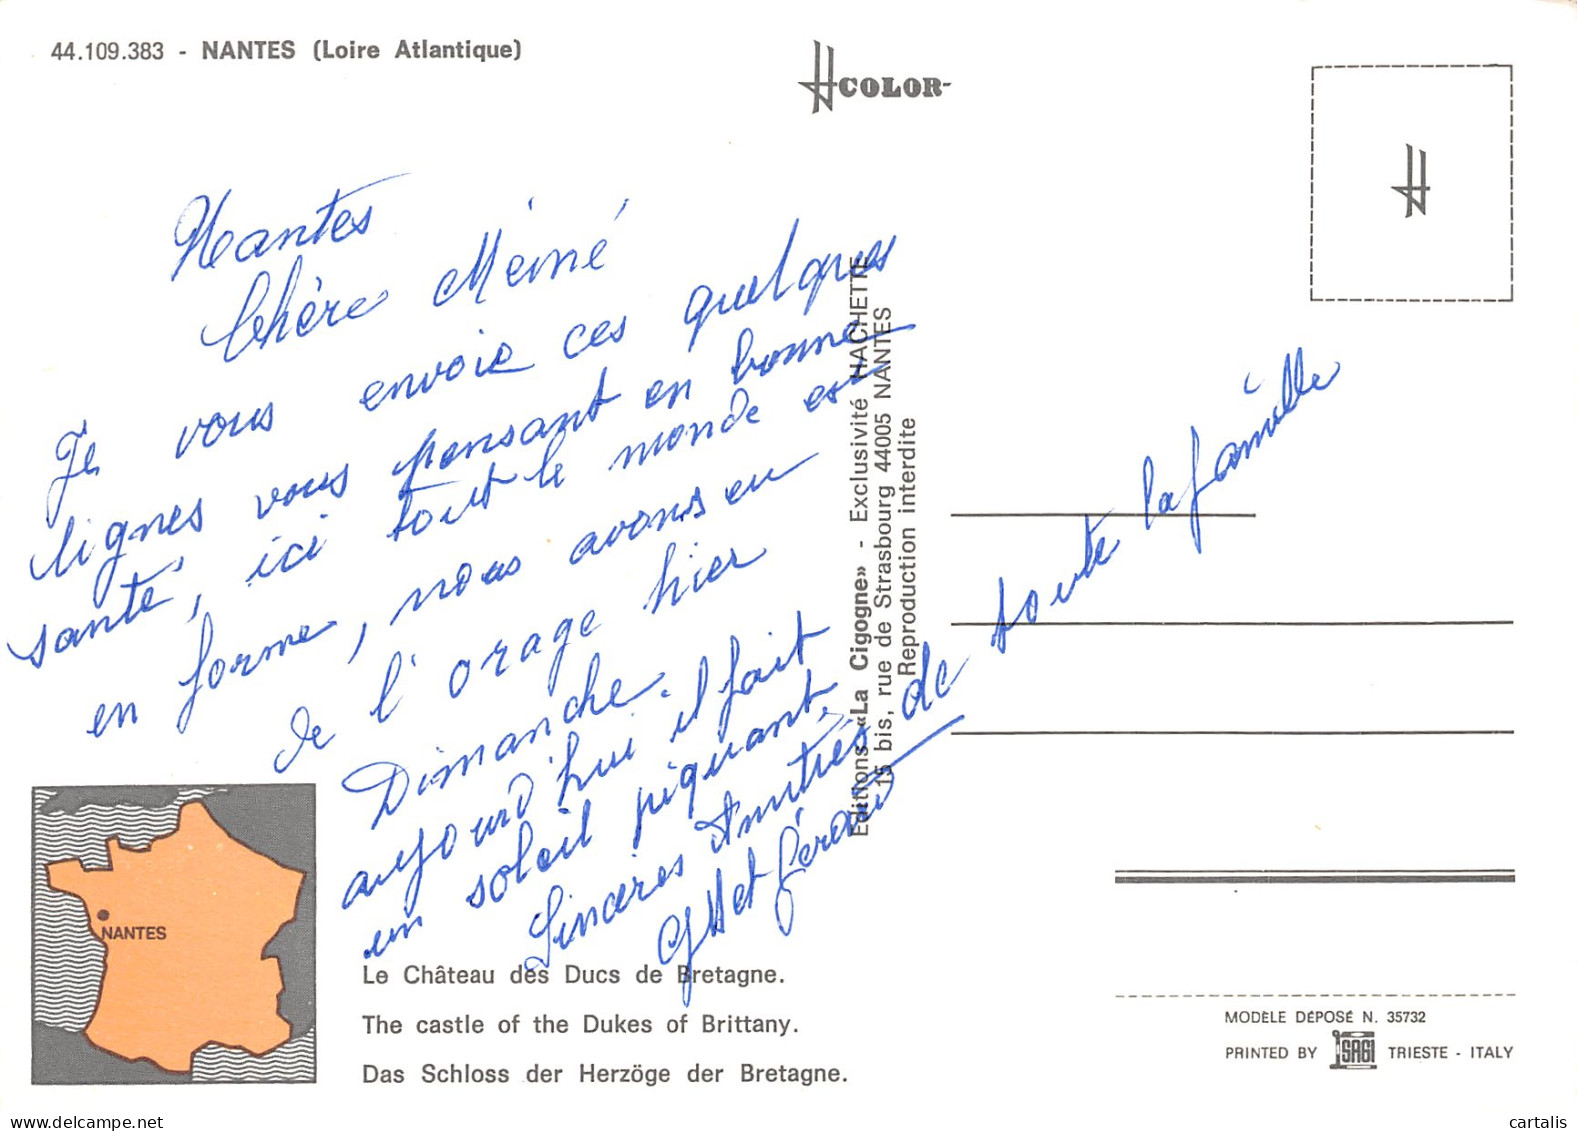 44.109.383 - NANTES (Loire Atlantique)
COLOR-
Nantes
Chère Mémé
Je vous envoie ces quelques
lignes vous pensant en bonne
santé, ici tout le monde est
en forme, nous avons eu
de l'orage hier
Dimanche. il fait
aujourd'hui
un soleil piquant.
Sincères Amitiés de toute la famille
et Gérard
Editions «La Cigogne» - Exclusivité HACHETTE
15 bis, rue de Strasbourg 44005 NANTES
Reproduction interdite
NANTES
Le Château des Ducs de Bretagne.
The castle of the Dukes of Brittany.
Das Schloss der Herzöge der Bretagne.
MODÈLE DÉPOSÉ N. 35732
PRINTED BY SAGI TRIESTE - ITALY
cartalis